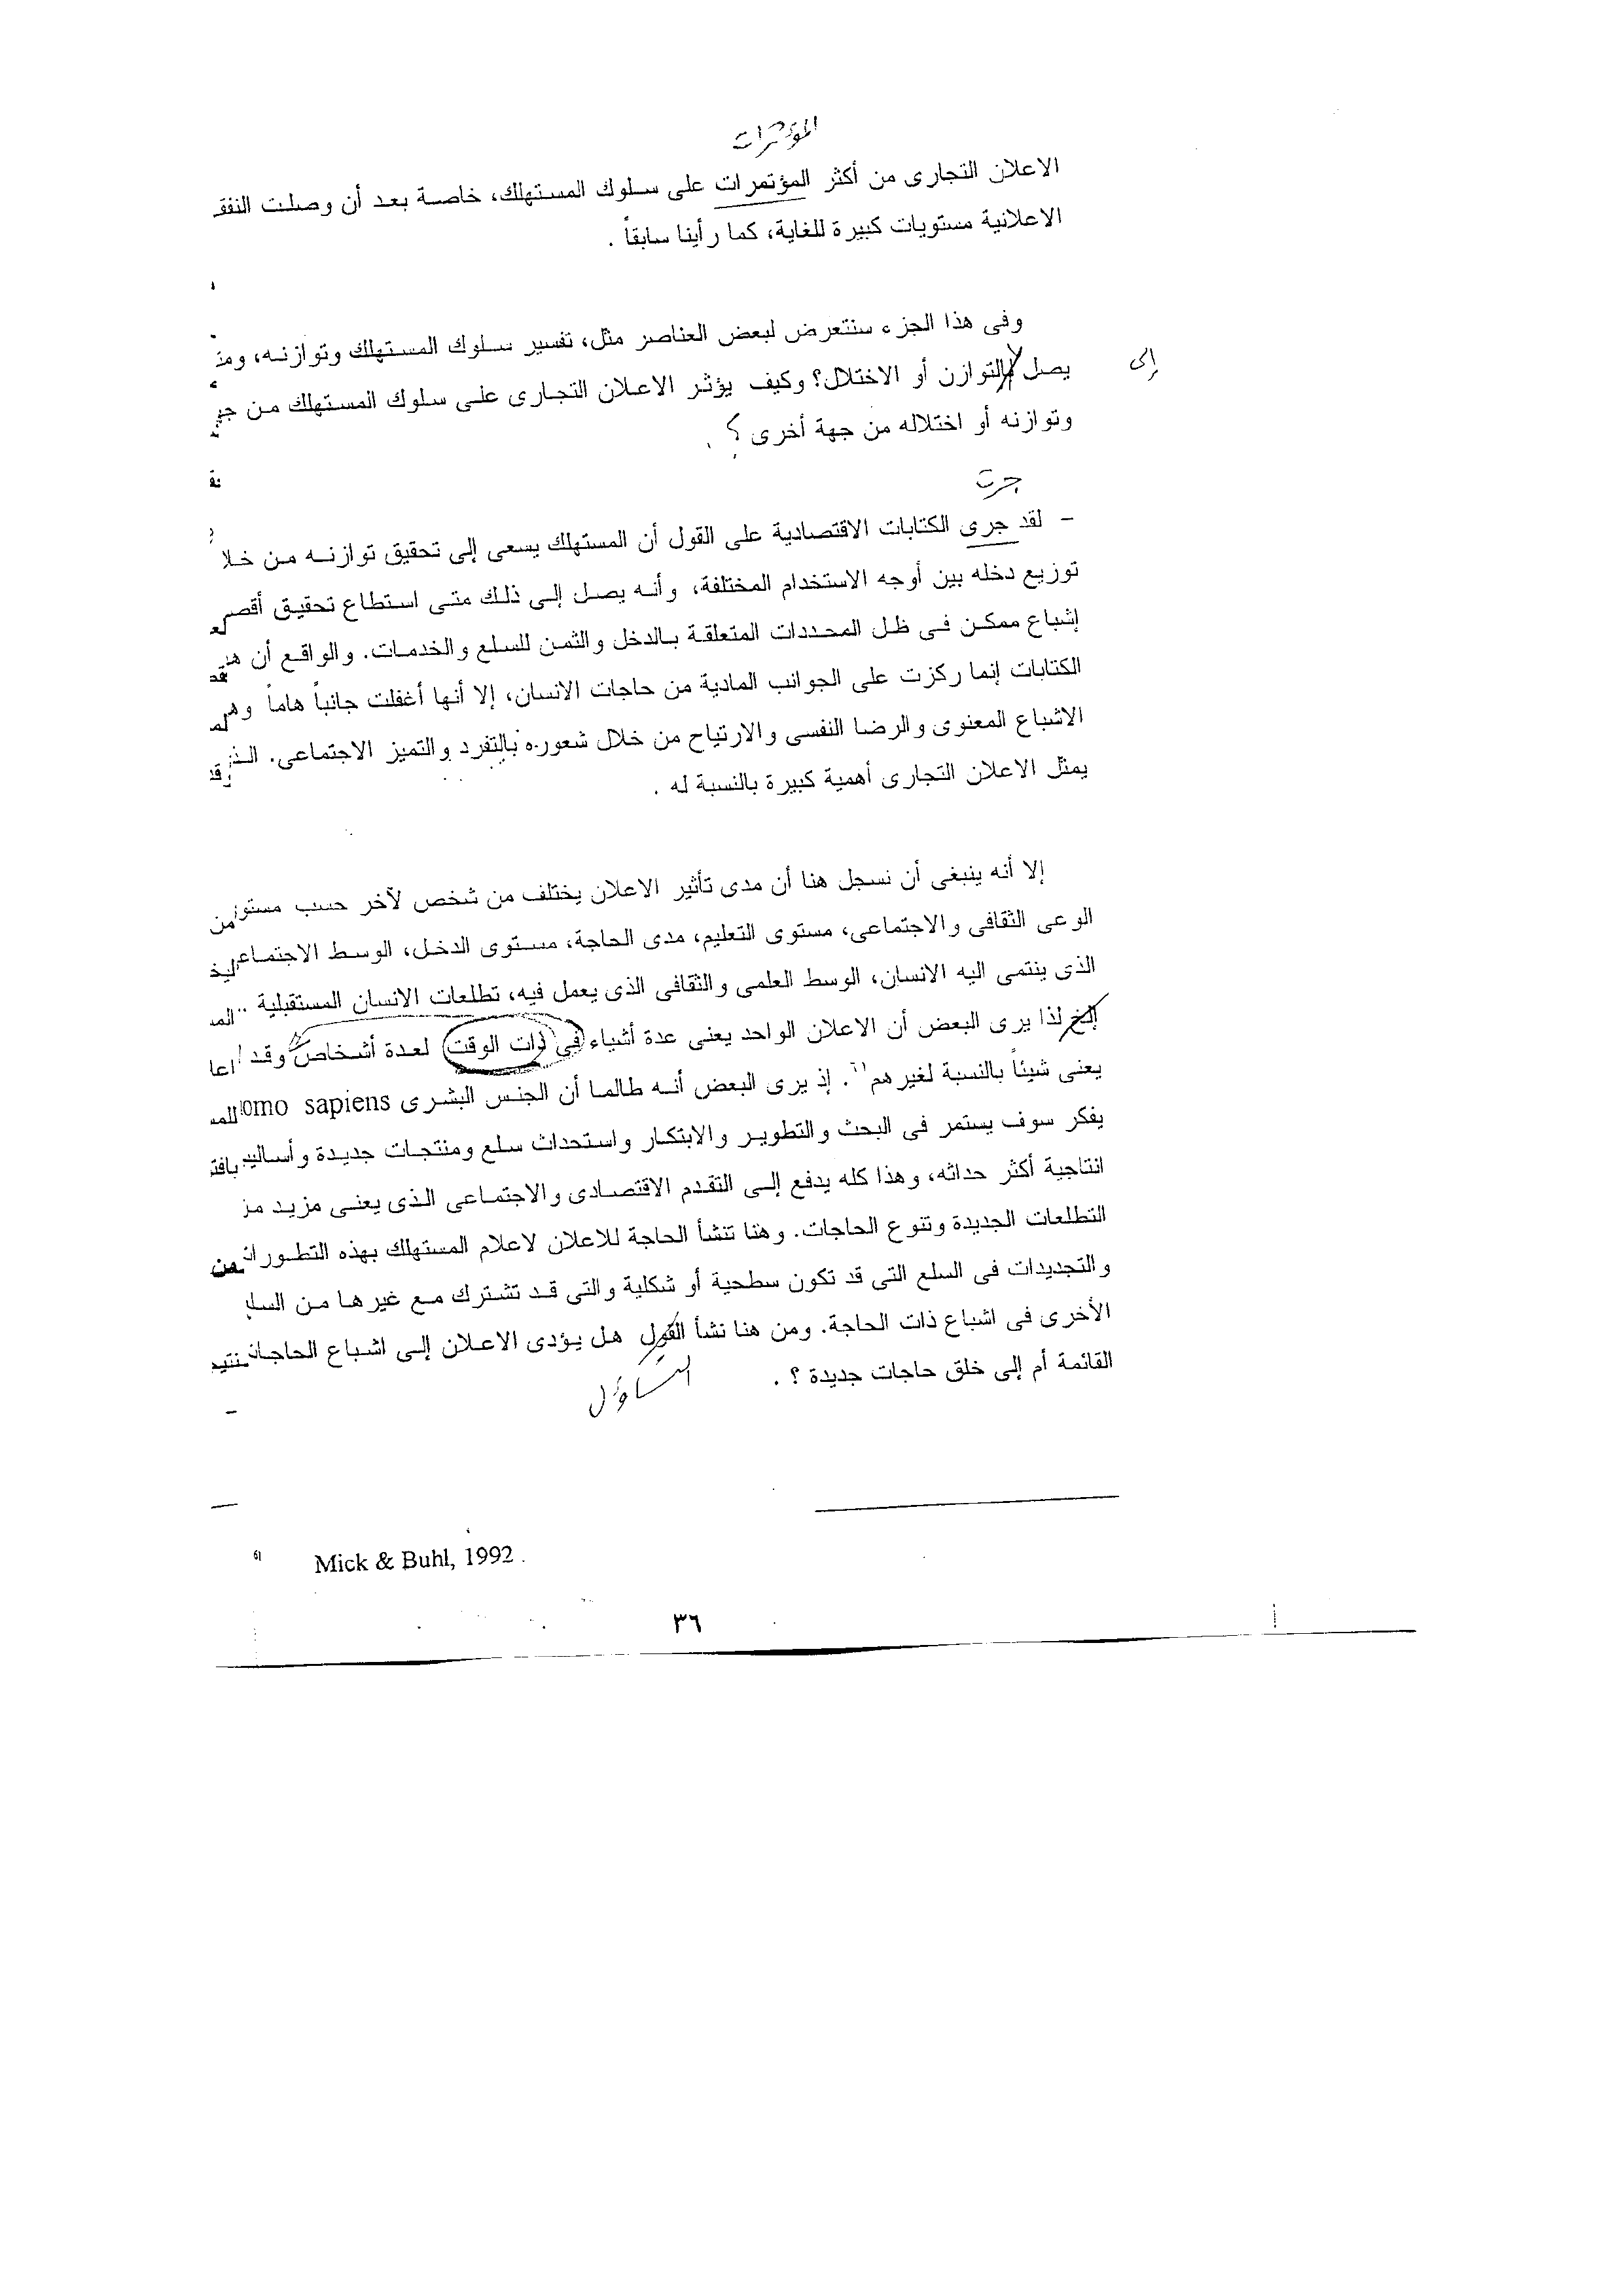 المؤثرات
الاعلان التجارى من أكثر المؤتمرات على سلوك المستهلك، خاصة بعد أن وصلت النفق
الاعلانية مستويات كبيرة للغاية، كما رأينا سابقاً .
وفى هذا الجزء سنتعرض لبعض العناصر مثل، تفسير سلوك المستهلك وتوازنه، ومت
إلى
يصل التوازن أو الاختلال؟ وكيف يؤثر الاعلان التجارى على سلوك المستهلك من جه
وتوازنه أو اختلاله من جهة أخرى ؟ .
جرت
- لقد جرى الكتابات الاقتصادية على القول أن المستهلك يسعى إلى تحقيق توازنه من خلا
توزيع دخله بين أوجه الاستخدام المختلفة، وأنه يصل إلى ذلك متى استطاع تحقيق أقص
إشباع ممكن فى ظل المحددات المتعلقة بالدخل والثمن للسلع والخدمات. والواقع أن هذ
الكتابات إنما ركزت على الجوانب المادية من حاجات الانسان، إلا أنها أغفلت جانباً هاماً وهو
الاشباع المعنوى والرضا النفسى والارتياح من خلال شعوره بالتفرد والتميز الاجتماعى. الذ
يمثل الاعلان التجارى أهمية كبيرة بالنسبة له .
إلا أنه ينبغى أن نسجل هنا أن مدى تأثير الاعلان يختلف من شخص لآخر حسب مستو
الوعى الثقافى والاجتماعى، مستوى التعليم، مدى الحاجة، مستوى الدخل، الوسط الاجتماع
الذى ينتمى اليه الانسان، الوسط العلمى والثقافى الذى يعمل فيه، تطلعات الانسان المستقبلية ..
إلخ لذا يرى البعض أن الاعلان الواحد يعنى عدة أشياء فى ذات الوقت لعدة أشخاص وقد
يعنى شيئاً بالنسبة لغيرهم٦١. إذ يرى البعض أنه طالما أن الجنس البشرى omo sapiens
يفكر سوف يستمر فى البحث والتطوير والابتكار واستحداث سلع ومنتجات جديدة وأساليب
انتاجية أكثر حداثه، وهذا كله يدفع إلى التقدم الاقتصادى والاجتماعى الذى يعنى مزيد من
التطلعات الجديدة وتنوع الحاجات. وهنا تنشأ الحاجة للاعلان لاعلام المستهلك بهذه التطورات
والتجديدات فى السلع التى قد تكون سطحية أو شكلية والتى قد تشترك مع غيرها من السل
الأخرى فى اشباع ذات الحاجة. ومن هنا نشأ القول هل يؤدى الاعلان إلى اشباع الحاجات
القائمة أم إلى خلق حاجات جديدة ؟ .
التساؤل
61 Mick & Buhl, 1992 .
٣٦